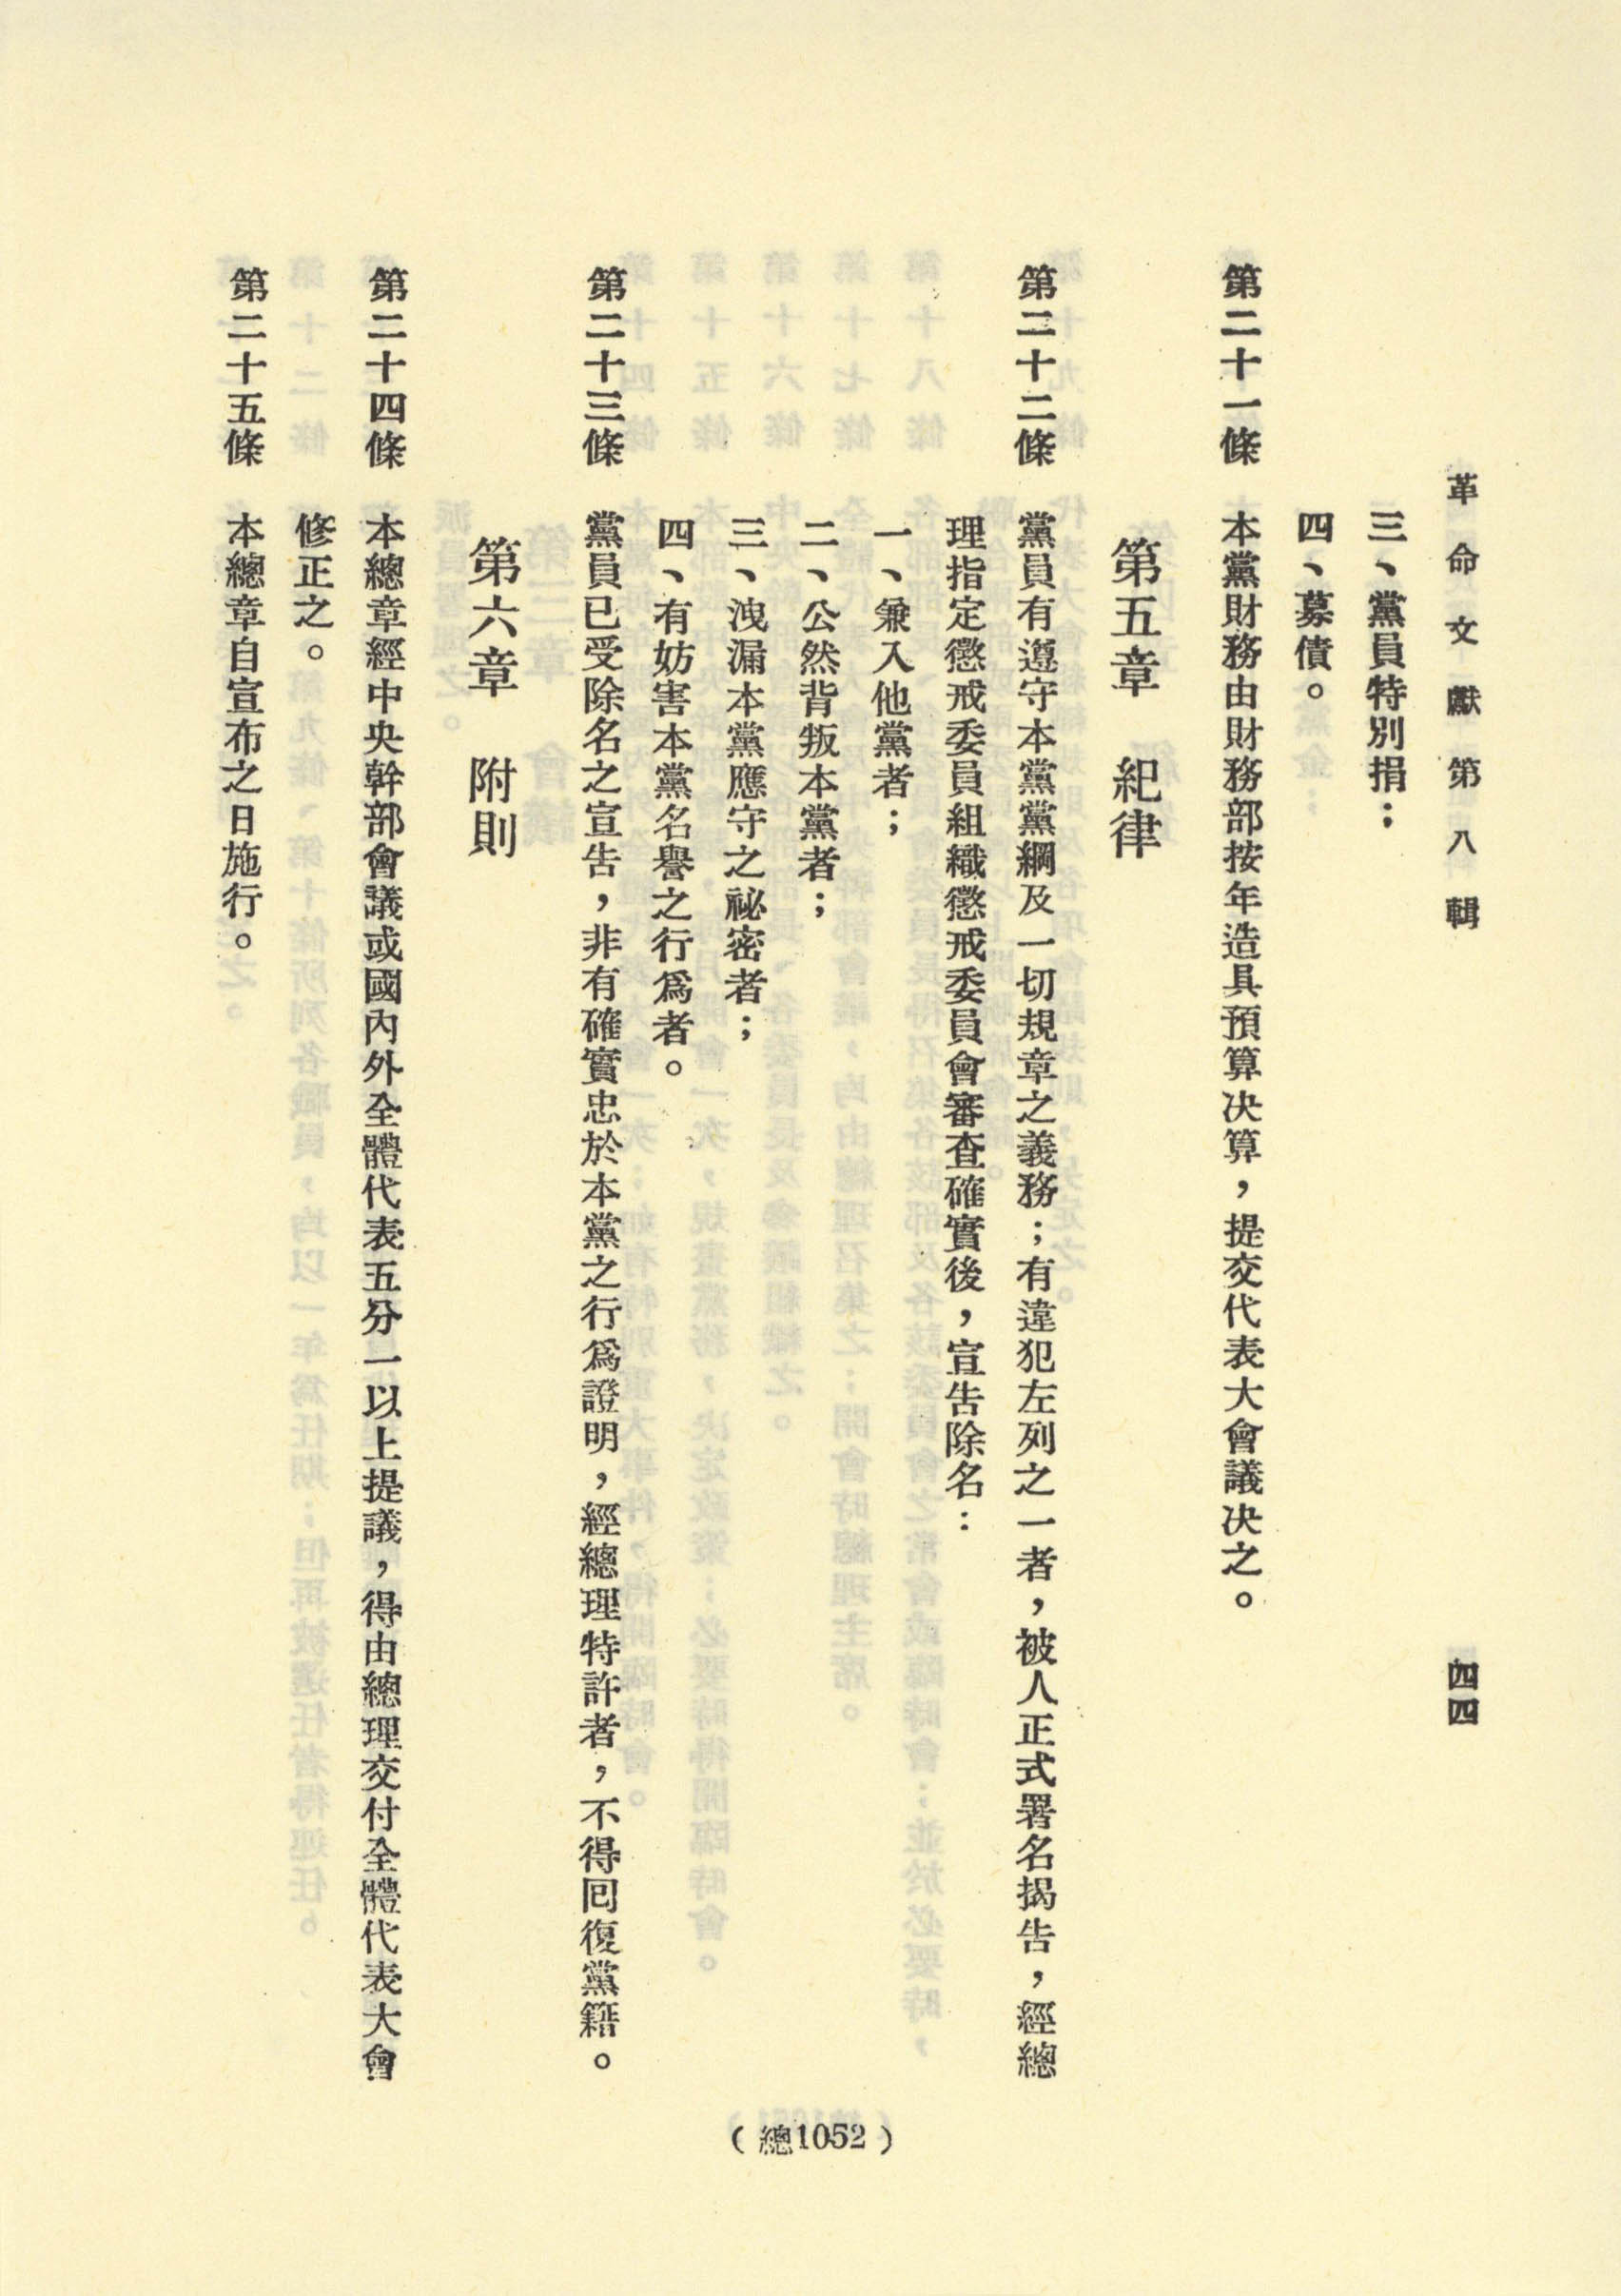 革命文獻第八輯
四四
三、黨員特別捐；
四、募債。
第二十一條　本黨財務由財務部按年造具預算決算，提交代表大會議決之。
第五章　紀律
第二十二條　黨員有遵守本黨黨綱及一切規章之義務；有違犯左列之一者，被人正式署名揭告，經總
理指定懲戒委員組織懲戒委員會審查確實後，宣告除名：
一、兼入他黨者；
二、公然背叛本黨者；
三、洩漏本黨應守之祕密者；
四、有妨害本黨名譽之行爲者。
第二十三條　黨員已受除名之宣告，非有確實忠於本黨之行爲證明，經總理特許者，不得囘復黨籍。
第六章　附則
第二十四條　本總章經中央幹部會議或國內外全體代表五分一以上提議，得由總理交付全體代表大會
修正之。
第二十五條　本總章自宣布之日施行。
（總1052）